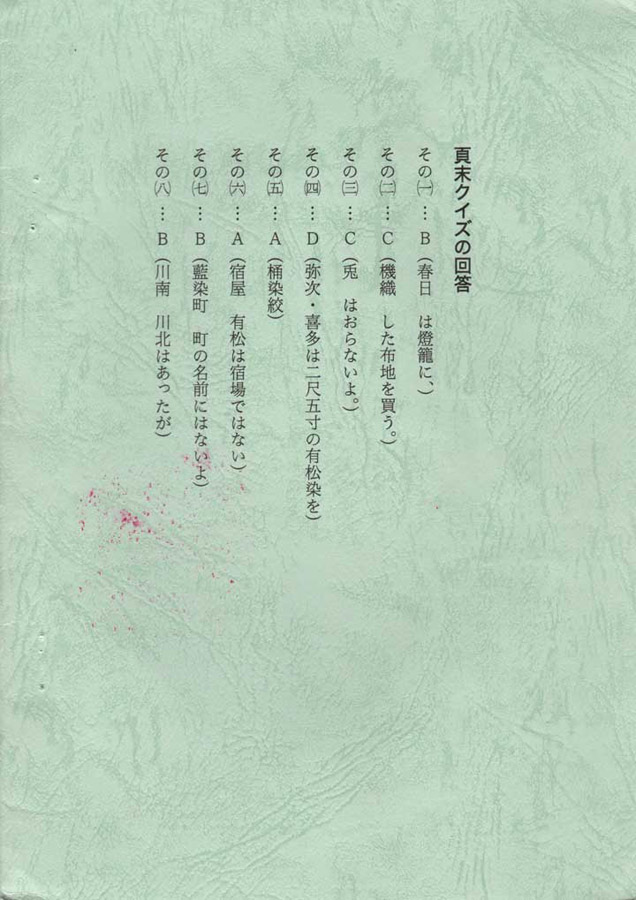 頁末クイズの回答
その㈠…B(春日　は燈籠に、)
その㈡…C(機織　した布地を買う。)
その㈢…C(兎　はおらないよ。)
その㈣…D(弥次・喜多は二尺五寸の有松染を)
その㈤…A(桶染絞)
その㈥…A(宿屋　有松は宿場ではない)
その㈦…B(藍染町　町の名前にはないよ)
その㈧…B(川南　川北はあったが)